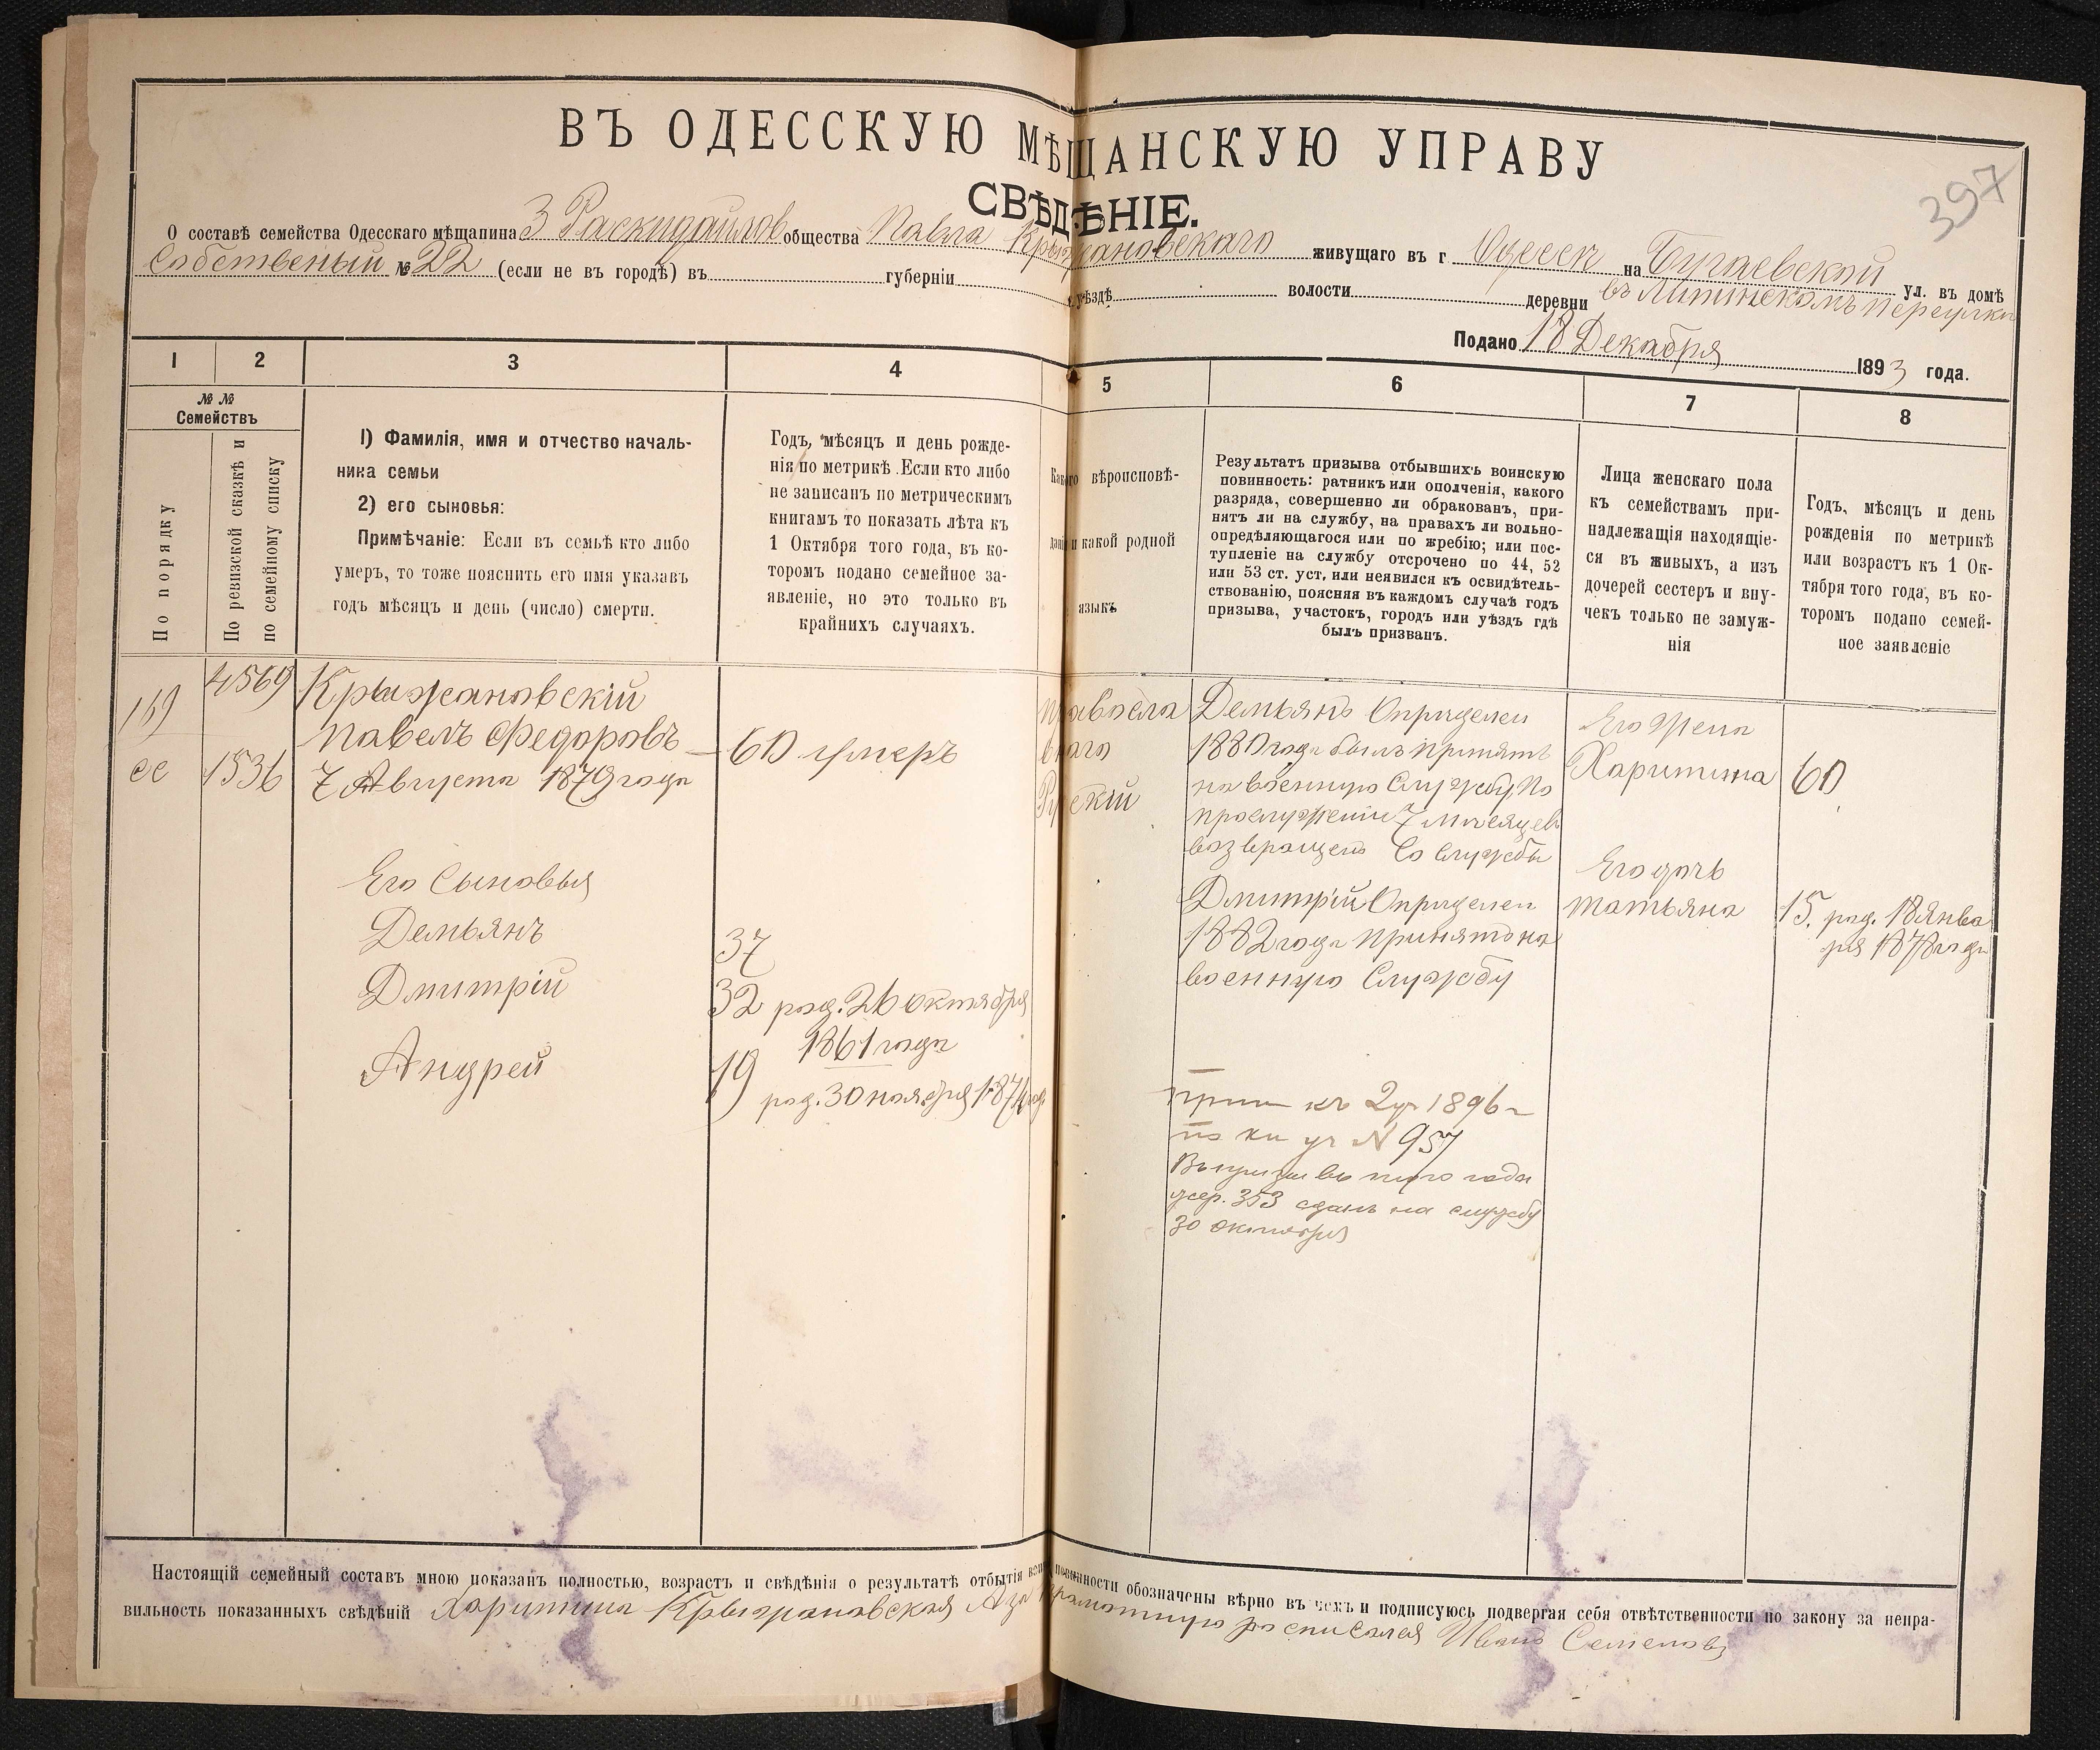 397
ВЪ ОДЕССКУЮ МѢЩАНСКУЮ УПРАВУ
СВѢДѢНІЕ.
О составѣ семейства Одесскаго мѣщанина 3 Раскидайлов общества Павла Крыжановскаго живущаго въ г Одессѣ на Бугаевской ул. въ домѣ
Собственый № 22 (если не въ городѣ) въ губерніи уѣздѣ волости деревни въ Литинскомъ переулки
Подано 18 Декабря 1893 года.
1 2 3 4 5 6 7 8
№ №
Семействъ
По порядку
По ревизской сказкѣ и
по семейному списку
1) Фамилія, имя и отчество началь-
ника семьи
2) его сыновья:
Примѣчаніе: Если въ семьѣ кто либо
умеръ, то тоже пояснить его имя указавъ
годъ мѣсяцъ и день (число) смерти.
Годъ, мѣсяцъ и день рожде-
нія по метрикѣ. Если кто либо
не записанъ по метрическимъ
книгамъ то показать лѣта къ
1 Октября того года, въ ко-
торомъ подано семейное за-
явленіе, но это только въ
крайнихъ случаяхъ.
Какого вѣроисповѣ-
данія и какой родной
языкъ
Результатъ призыва отбывшихъ воинскую
повинность: ратникъ или ополченія, какого
разряда, совершенно ли обракованъ, при-
нятъ ли на службу, на правахъ ли вольно-
опредѣляющагося или по жребію; или пос-
тупленіе на службу отсрочено по 44, 52
или 53 ст. уст. или неявился къ освидѣтель-
ствованію, поясняя въ каждомъ случаѣ годъ
призыва, участокъ, городъ или уѣздъ гдѣ
былъ призванъ.
Лица женскаго пола
къ семействамъ при-
надлежащія находящіе-
ся въ живыхъ, а изъ
дочерей сестеръ и вну-
чекъ только не замуж-
нія
Годъ, мѣсяцъ и день
рожденія по метрикѣ
или возрастъ къ 1 Ок-
тября того года, въ ко-
торомъ подано семей-
ное заявленіе
169
4569
1536
Крыжановскій
Павелъ Федоровъ
7 Августа 1879 года
60 умеръ
Православнаго
Рускій
Его Сыновья
Демьянъ
37
Дмитрій
32 род. 26 октября
1861 года
Андрей
19
род. 30 ноября 1874 год
Демьянъ Определен
1880 года былъ принятъ
на военную Службу, По
прослуженіи 7 мисяцев
возвращенъ Со Службы
Дмитрій Определен
1882 года принятъ на
военную Службу
къ 2 уч 1896 г
N 957
жер. 353 сданъ на службу
30 октября
Его Жена
Харитина
60
Его дочь
Татьяна
15. род. 18 Янва
ря 1878 года
Настоящій семейный составъ мною показанъ полностью, возрастъ и свѣдѣнія о результатѣ отбытія воинской повинности обозначены вѣрно въ чемъ и подписуюсь подвергая себя отвѣтственности по закону за непра-
вильность показанныхъ свѣдѣній Харитина Крыжановская А за неграмотную росписался Иванъ Семеновъ